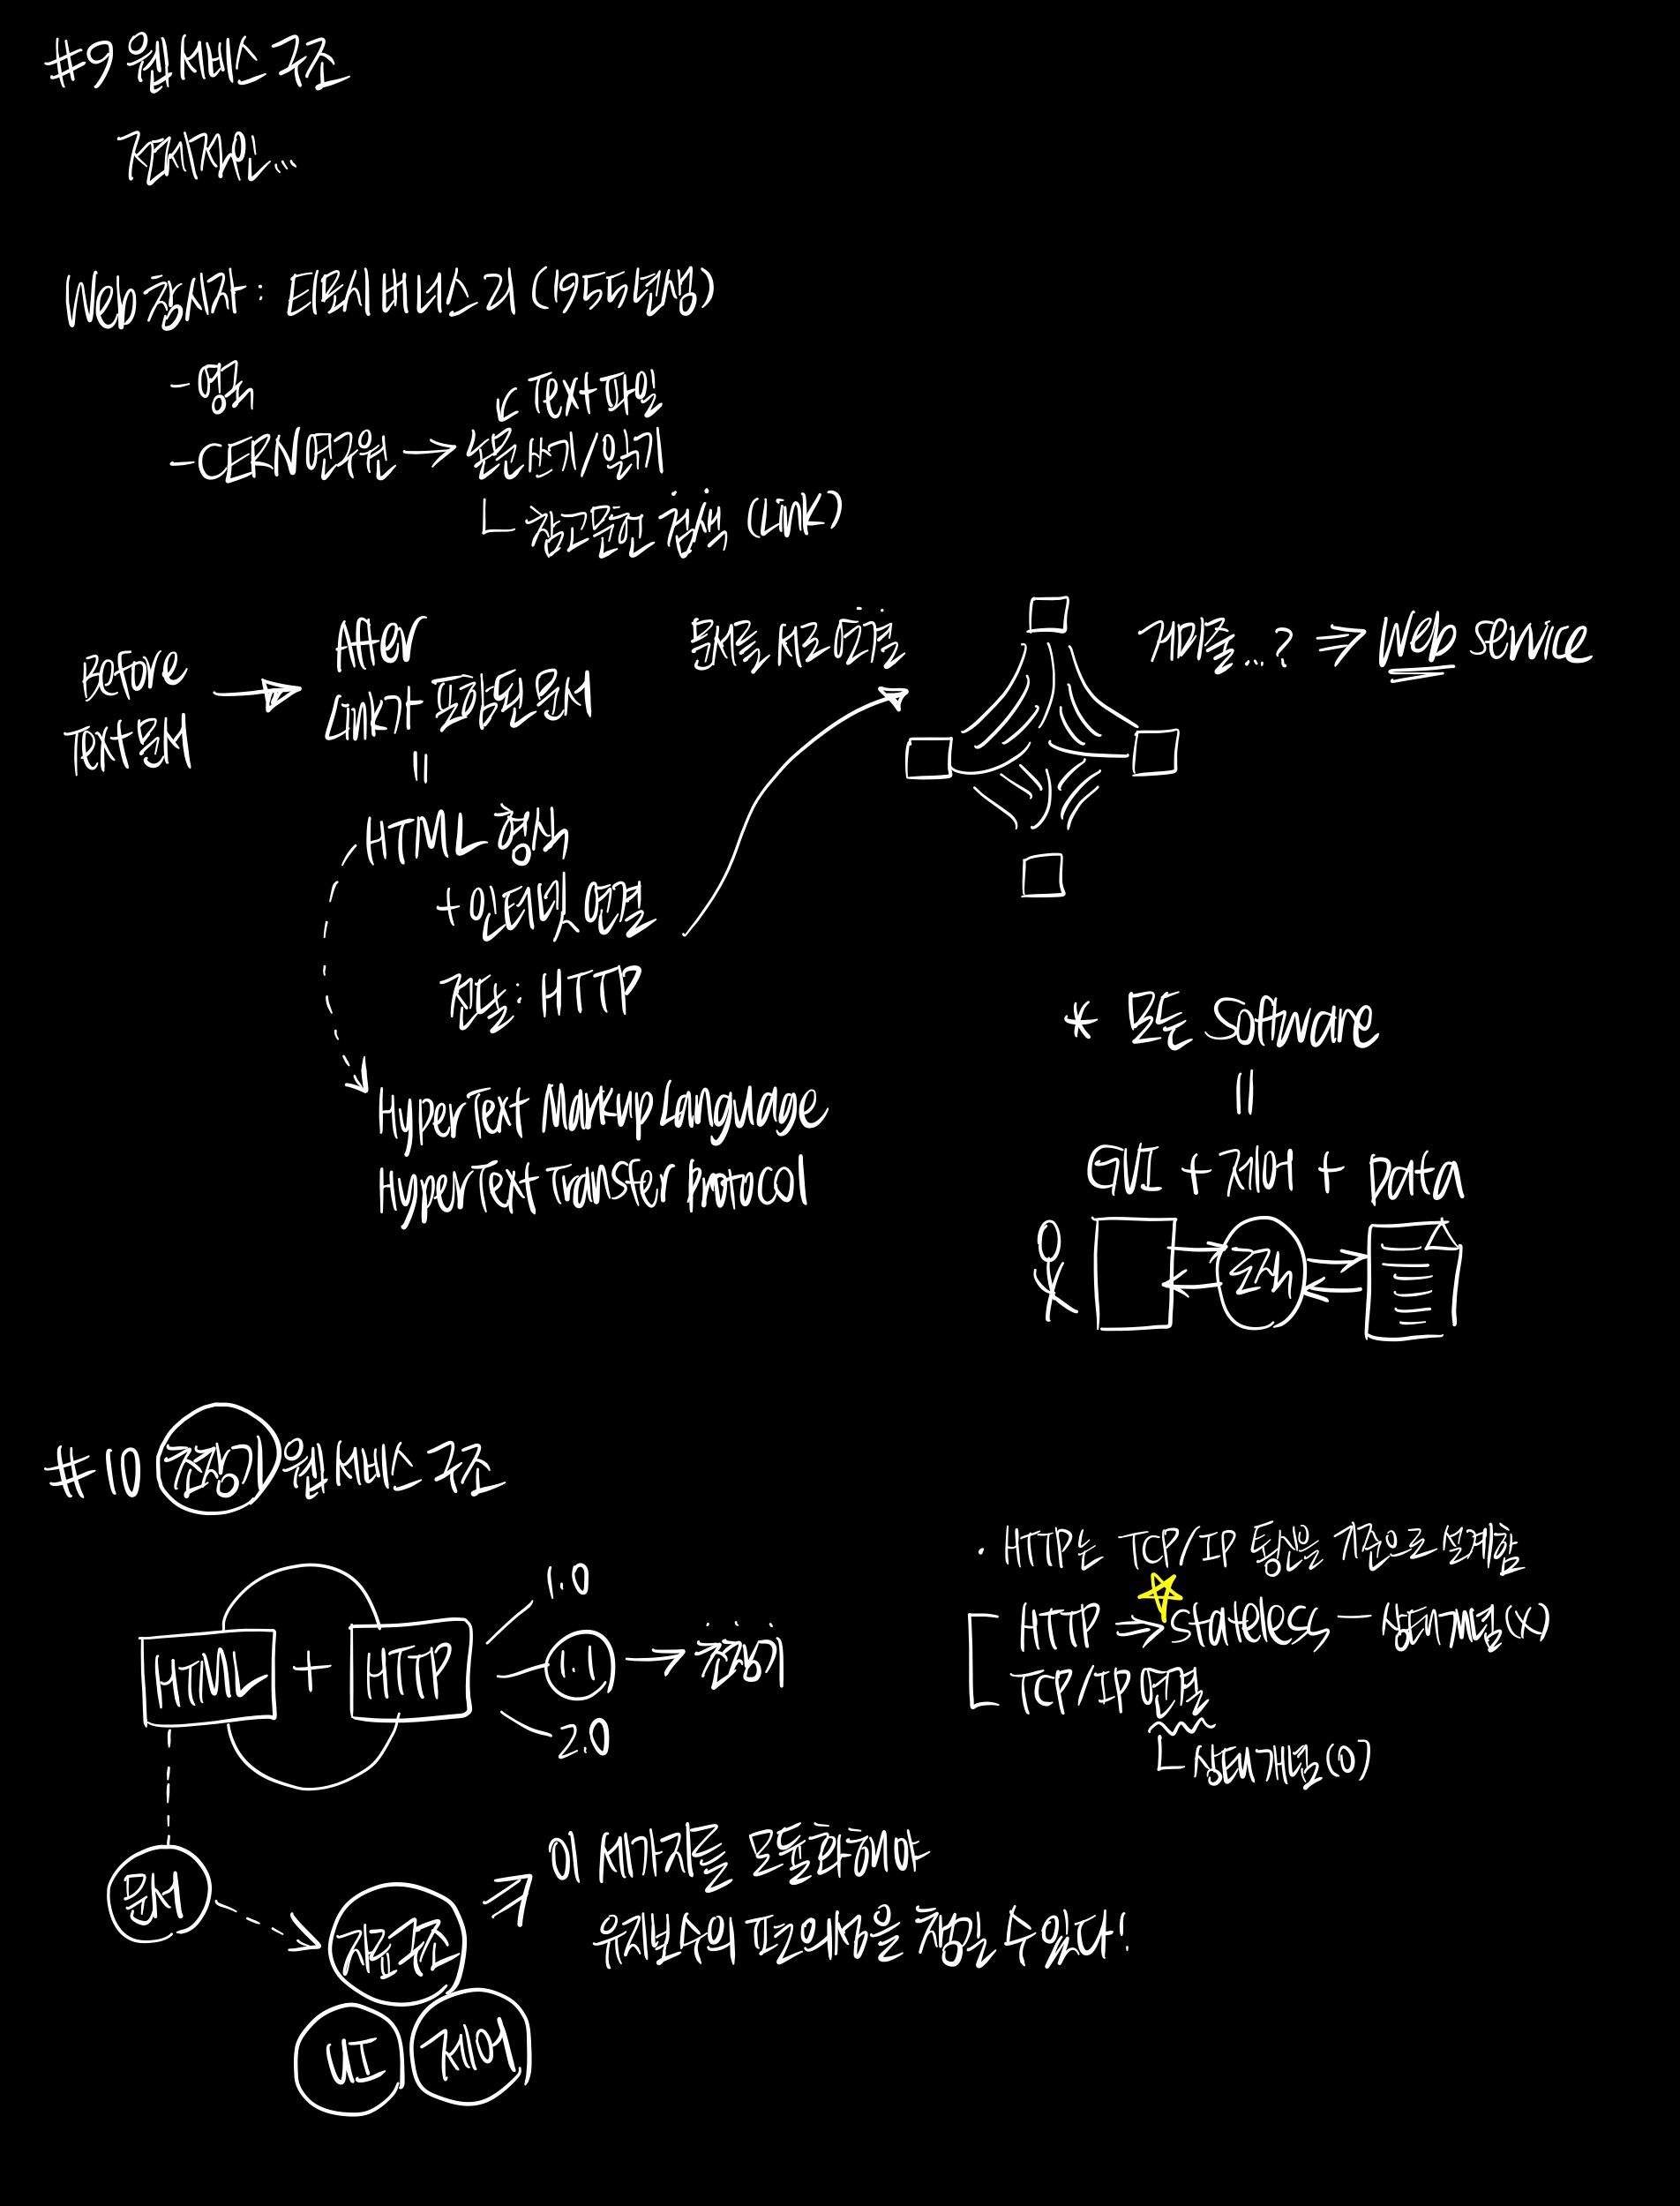 #9 웹 서비스 구조
Web 창시자 : 티모시 버너스 리 (1955년생)
- 영국
- CERN 연구원 → 논문 쓰기/읽기
↙ Text 파일
└ 참고문헌 검색 (Link)
Before
Text 문서
After
Link가 포함된 문서
=
HTML 형식
+ 인터넷 연결
전달 : HTTP
HyperText Markup Language
HyperText Transfer Protocol
문서들 서로 연결
거미줄...? ⇒ Web service
* 모든 Software
=
GUI + 제어 + Data
로직
#10 초창기 웹 서비스 구조
HTML + HTTP
1.0
1.1 → 초창기
2.0
· HTTP는 TCP/IP 통신을 기준으로 설계함
HTTP ⇒ Stateless — 상태개념(X)
TCP/IP 연결
└ 상태개념(O)
문서
자료구조
UI
제어
⇒ 이 세가지를 모듈화해야
유지보수의 편의성을 챙길 수 있다!